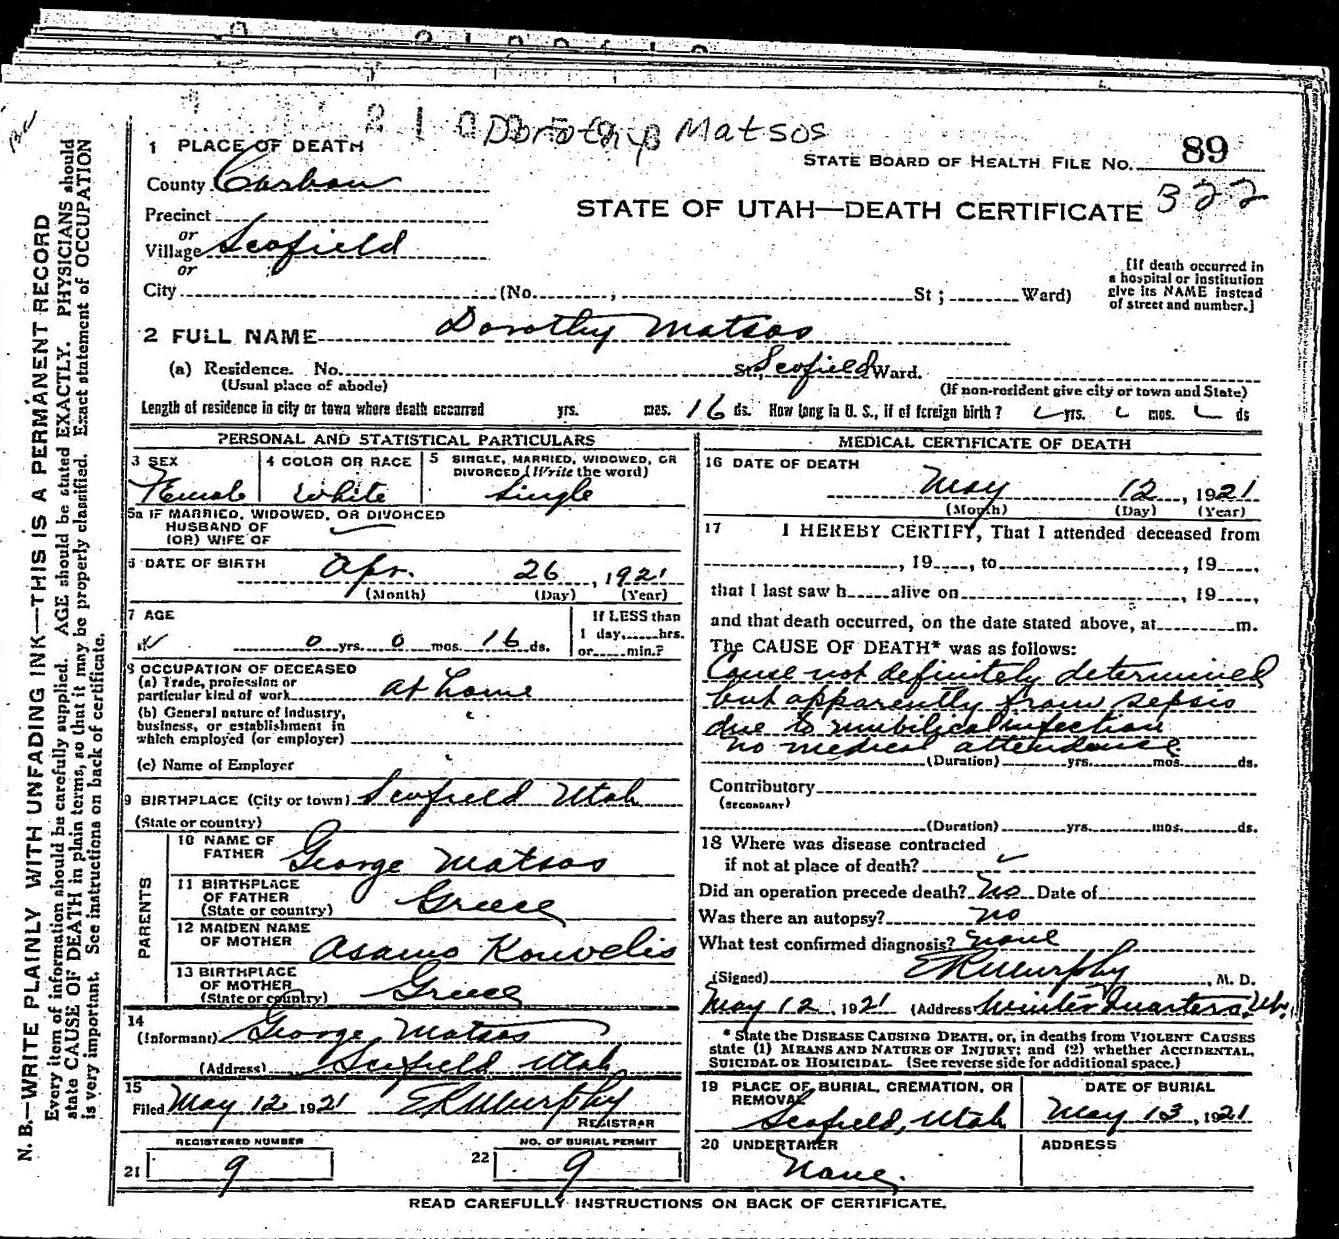 Dorothy Matsos
1 PLACE OF DEATH
STATE BOARD OF HEALTH FILE NO. 89
County Carbon
322
STATE OF UTAH—DEATH CERTIFICATE
Precinct
or
Village Scofield
or
[If death occurred in
a hospital or institution
give its NAME instead
of street and number.]
City (No. , St ; Ward)
2 FULL NAME Dorothy Matsos
(a) Residence. No. St., Scofield Ward.
(Usual place of abode) (If non-resident give city or town and State)
Length of residence in city or town where death occurred yrs. mos. 16 ds. How long in U. S., if of foreign birth? yrs. mos. ds
PERSONAL AND STATISTICAL PARTICULARS
3 SEX 4 COLOR OR RACE 5 SINGLE, MARRIED, WIDOWED, OR
DIVORCED (Write the word)
Female White Single
5a IF MARRIED, WIDOWED, OR DIVORCED
HUSBAND OF
(OR) WIFE OF
6 DATE OF BIRTH Apr. 26, 1921
(Month) (Day) (Year)
7 AGE If LESS than
1 day, hrs.
0 yrs. 0 mos. 16 ds. or min.?
8 OCCUPATION OF DECEASED
(a) Trade, profession or
particular kind of work at home
(b) General nature of industry,
business, or establishment in
which employed (or employer)
(c) Name of Employer
9 BIRTHPLACE (City or town) Scofield Utah
(State or country)
PARENTS
10 NAME OF
FATHER George Matsos
11 BIRTHPLACE
OF FATHER Greece
(State or country)
12 MAIDEN NAME
OF MOTHER Asamo Kouvelis
13 BIRTHPLACE
OF MOTHER Greece
(State or country)
14
(Informant) George Matsos
(Address) Scofield Utah
15
Filed May 12 1921 E R Murphy
REGISTRAR
REGISTERED NUMBER NO. OF BURIAL PERMIT
21 9 22 9
MEDICAL CERTIFICATE OF DEATH
16 DATE OF DEATH
May 12, 1921
(Month) (Day) (Year)
17 I HEREBY CERTIFY, That I attended deceased from
, 19 , to , 19 ,
that I last saw h alive on , 19 ,
and that death occurred, on the date stated above, at m.
The CAUSE OF DEATH* was as follows:
Cause not definitely determined
but apparently from sepsis
due to umbilical infection
no medical attendance
(Duration) yrs. mos. ds.
Contributory
(SECONDARY)
(Duration) yrs. mos. ds.
18 Where was disease contracted
if not at place of death?
Did an operation precede death? No Date of
Was there an autopsy? no
What test confirmed diagnosis? none
(Signed) E R Murphy, M. D.
May 12, 1921 (Address Winter Quarters, Ut.
* State the DISEASE CAUSING DEATH, or, in deaths from VIOLENT CAUSES
state (1) MEANS AND NATURE OF INJURY; and (2) whether ACCIDENTAL,
SUICIDAL OR HOMICIDAL. (See reverse side for additional space.)
19 PLACE OF BURIAL, CREMATION, OR DATE OF BURIAL
REMOVAL
Scofield, Utah May 13, 1921
20 UNDERTAKER ADDRESS
None.
READ CAREFULLY INSTRUCTIONS ON BACK OF CERTIFICATE.
N. B.—WRITE PLAINLY WITH UNFADING INK—THIS IS A PERMANENT RECORD
Every item of information should be carefully supplied. AGE should be stated EXACTLY. PHYSICIANS should
state CAUSE OF DEATH in plain terms, so that it may be properly classified. Exact statement of OCCUPATION
is very important. See instructions on back of certificate.